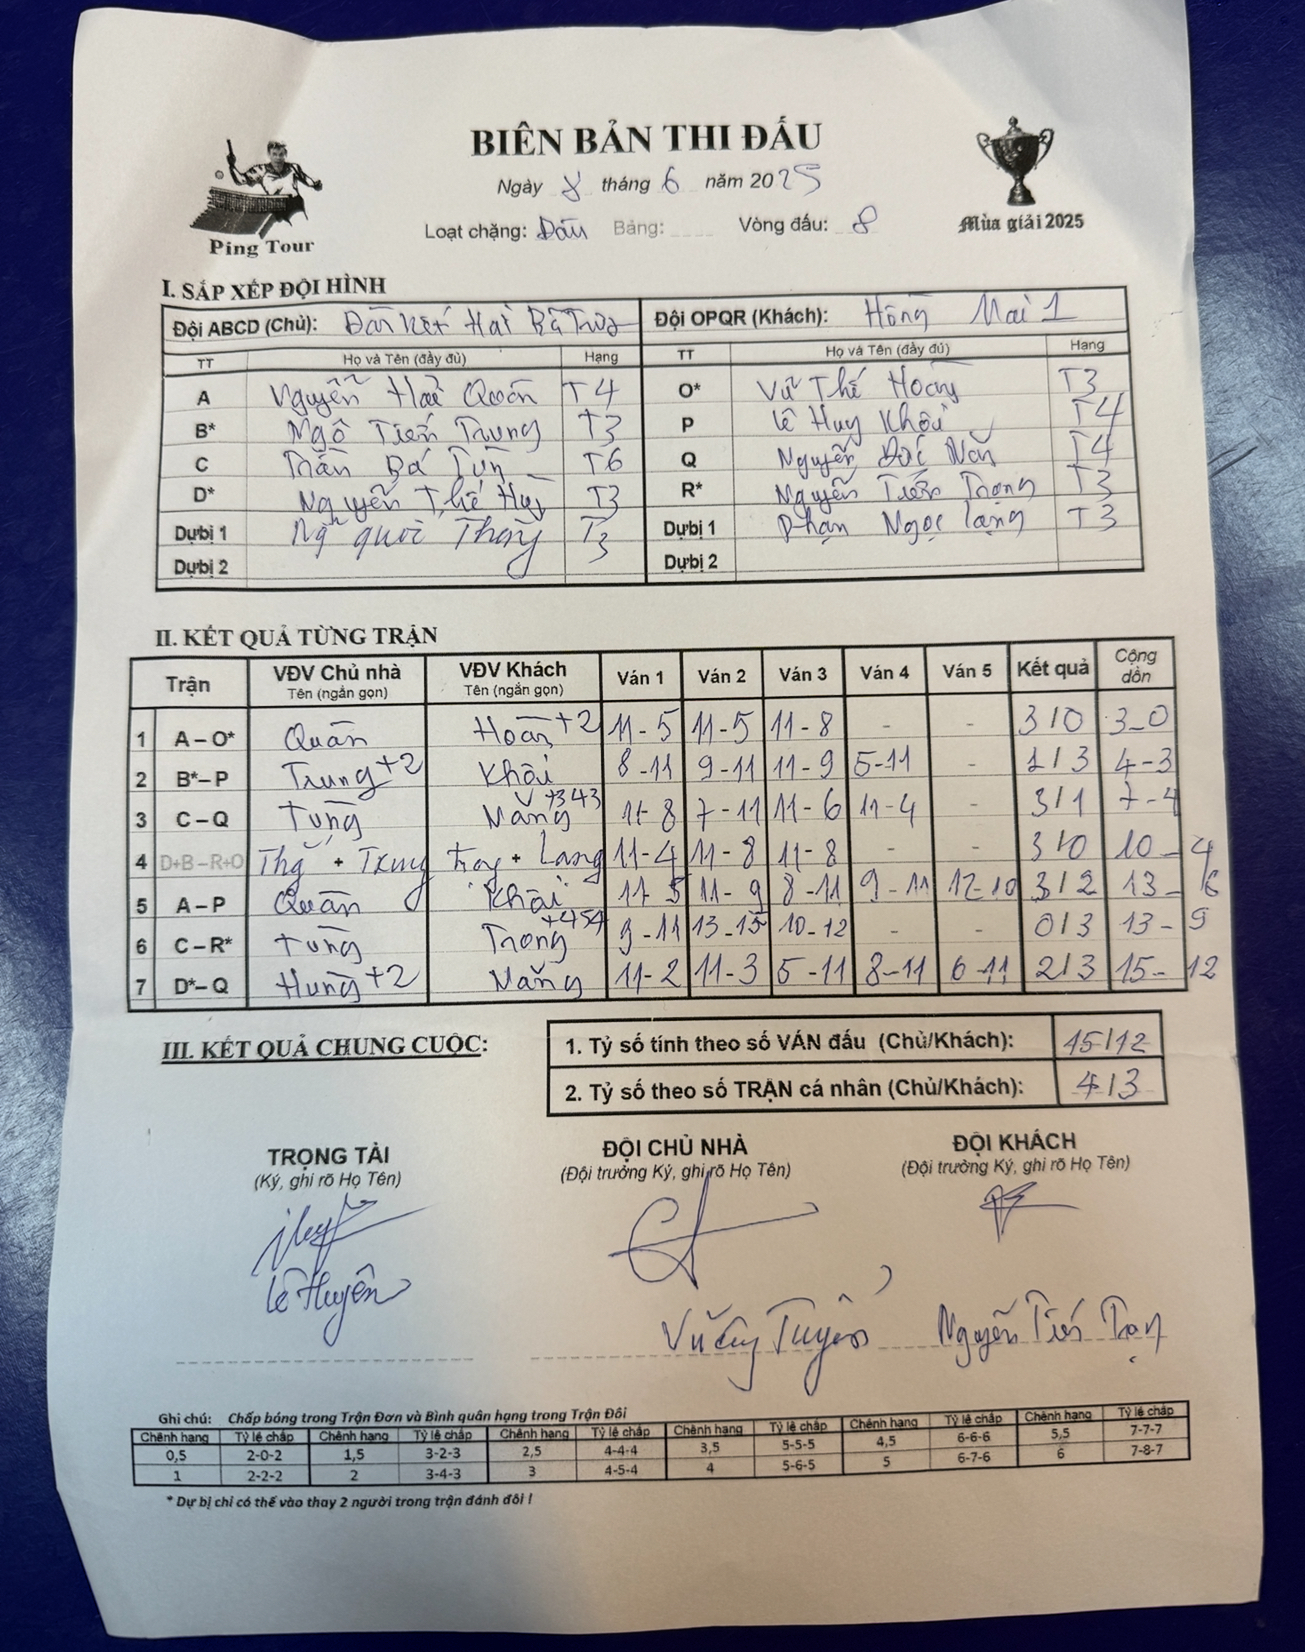 BIÊN BẢN THI ĐẤU
Ngày 8 tháng 6 năm 2025
Loạt chặng: Đấu Bảng: Vòng đấu: 8
Ping Tour
Mùa giải 2025
I. SẮP XẾP ĐỘI HÌNH
Đội ABCD (Chủ): Đoàn kết Hai Bà Trưng Đội OPQR (Khách): Hồng Mai 1
TT Họ và Tên (đầy đủ) Hạng TT Họ và Tên (đầy đủ) Hạng
A Nguyễn Hải Quân T4 O* Vũ Thế Hoàng T3
B* Ngô Tiến Trung T3 P Lê Huy Khôi T4
C Trần Bá Tùng T6 Q Nguyễn Đức Năng T4
D* Nguyễn Thế Hùng T3 R* Nguyễn Tiến Trọng T3
Dự bị 1 Ng Quốc Thắng T3 Dự bị 1 Phạn Ngọc Lạng T3
Dự bị 2 Dự bị 2
II. KẾT QUẢ TỪNG TRẬN
Trận VĐV Chủ nhà Tên (ngắn gọn) VĐV Khách Tên (ngắn gọn) Ván 1 Ván 2 Ván 3 Ván 4 Ván 5 Kết quả Cộng dồn
1 A – O* Quân Hoàng +2 11-5 11-5 11-8 - - 3/0 3-0
2 B* – P Trung +2 Khôi 8-11 9-11 11-9 5-11 - 1/3 4-3
3 C – Q Tùng Năng +343 11-8 7-11 11-6 11-4 - 3/1 7-4
4 D+B – R+O Thắ + Trung Trọng + Lang 11-4 11-8 11-8 3/0 10-4
5 A – P Quân Khôi 11-5 11-9 8-11 9-11 12-10 3/2 13-6
6 C – R* Tùng Trọng +454 9-11 13-15 10-12 - - 0/3 13-9
7 D* – Q Hùng +2 Năng 11-2 11-3 5-11 8-11 6-11 2/3 15-12
III. KẾT QUẢ CHUNG CUỘC:
1. Tỷ số tính theo số VÁN đấu (Chủ/Khách): 15/12
2. Tỷ số theo số TRẬN cá nhân (Chủ/Khách): 4/3
TRỌNG TÀI ĐỘI CHỦ NHÀ ĐỘI KHÁCH
(Ký, ghi rõ Họ Tên) (Đội trưởng Ký, ghi rõ Họ Tên) (Đội trưởng Ký, ghi rõ Họ Tên)
Lê Huyên
Vũ Tuyên Nguyễn Tiến Trọng
Ghi chú: Chấp bóng trong Trận Đơn và Bình quân hạng trong Trận Đôi
Chênh hạng Tỷ lệ chấp Chênh hạng Tỷ lệ chấp Chênh hạng Tỷ lệ chấp Chênh hạng Tỷ lệ chấp Chênh hạng Tỷ lệ chấp Chênh hạng Tỷ lệ chấp
0,5 2-0-2 1,5 3-2-3 2,5 4-4-4 3,5 5-5-5 4,5 6-6-6 5,5 7-7-7
1 2-2-2 2 3-4-3 3 4-5-4 4 5-6-5 5 6-7-6 6 7-8-7
* Dự bị chỉ có thể vào thay 2 người trong trận đánh đôi !